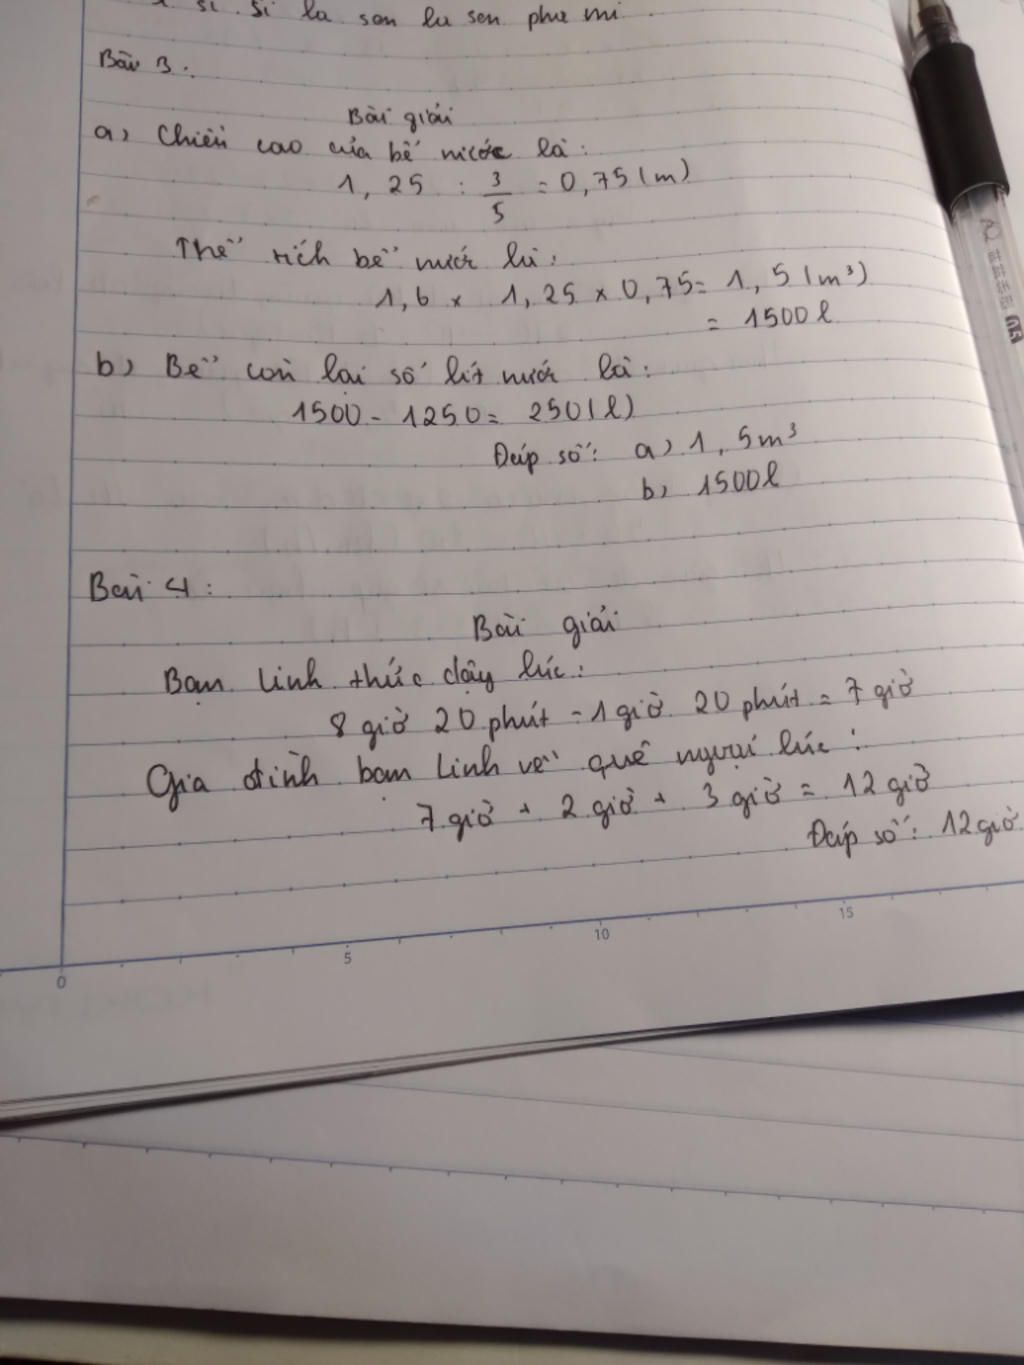 si si la son la son pha mi
Bài 3:
Bài giải
a) Chiều cao của bể nước là:
1,25 : 3/5 = 0,75 (m)
Thể tích bể nước là:
1,6 x 1,25 x 0,75 = 1,5 (m³)
= 1500 l
b) Bể còn lại số lít nước là:
1500 - 1250 = 250 (l)
Đáp số: a) 1,5m³
b) 1500l
Bài 4:
Bài giải
Bạn Linh thức dậy lúc:
8 giờ 20 phút - 1 giờ 20 phút = 7 giờ
Gia đình bạn Linh về quê ngoại lúc:
7 giờ + 2 giờ + 3 giờ = 12 giờ
Đáp số: 12 giờ
0 5 10 15
0.5